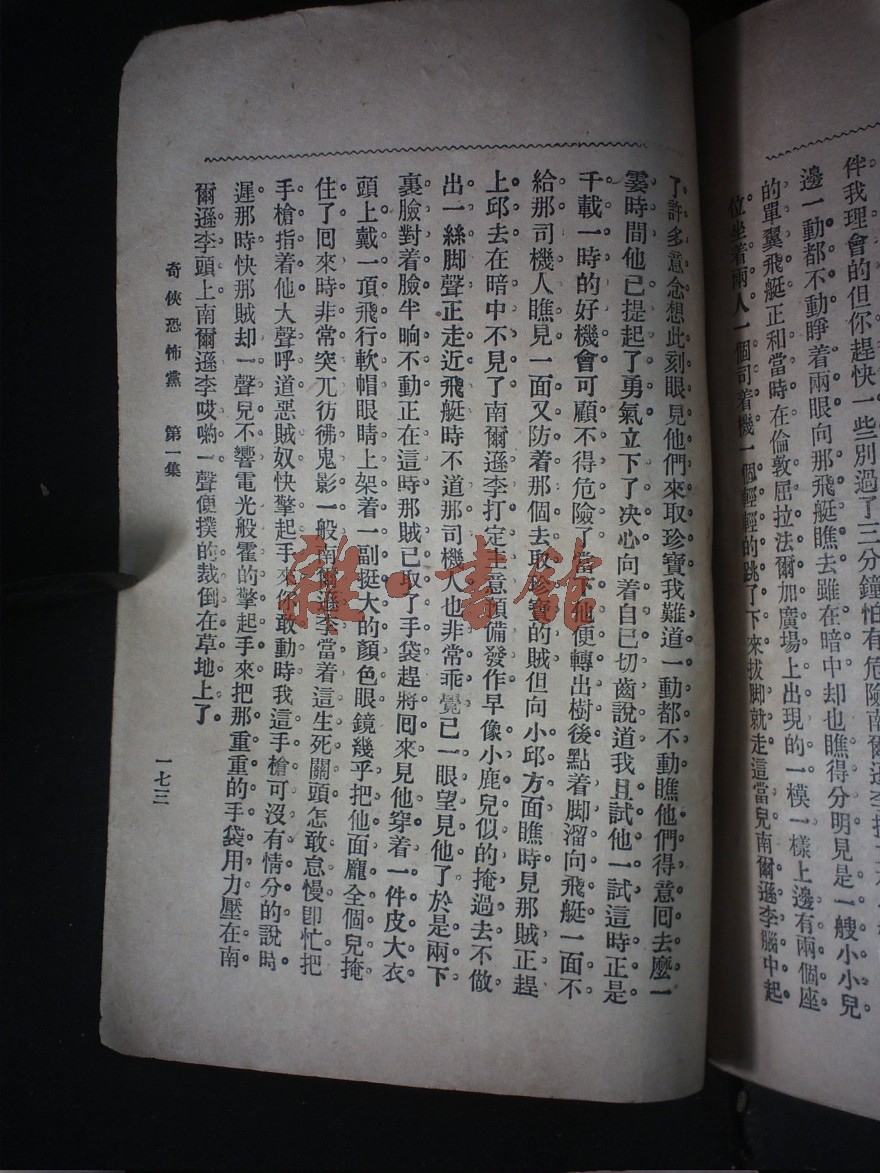 伴我理會的但你趕快一些別過了三分鐘怕有危險南爾遜李
邊一動都不動睜着兩眼向那飛艇瞧去雖在暗中却也瞧得分明見是一艘小小兒
的單翼飛艇正和當時在倫敦屈拉法爾加廣場上出現的一模一樣上邊有兩個座
位坐着兩人一個司着機一個輕輕的跳了下來拔脚就走這當兒南爾遜李腦中起
了許多意念想此刻眼見他們來取珍寶我難道一動都不動瞧他們得意回去麼一
霎時間他已提起了勇氣立下了决心向着自已切齒說道我且試他一試這時正是
千載一時的好機會可顧不得危險了當下他便轉出樹後點着脚溜向飛艇一面不
給那司機人瞧見一面又防着那個去取珍寶的賊但向小邱方面瞧時見那賊正趕
上邱去在暗中不見了南爾遜李打定主意預備發作早像小鹿兒似的掩過去不做
出一絲脚聲正走近飛艇時不道那司機人也非常乖覺已一眼望見他了於是兩下
裏臉對着臉半晌不動正在這時那賊已取了手袋趕將回來見他穿着一件皮大衣
頭上戴一頂飛行軟帽眼睛上架着一副挺大的顏色眼鏡幾乎把他面龐全個兒掩
住了回來時非常突兀彷彿鬼影一般南爾遜李當着這生死關頭怎敢怠慢卽忙把
手槍指着他大聲呼道惡賊奴快擎起手來你敢動時我這手槍可沒有情分的說時
遲那時快那賊却一聲兒不響電光般霍的擎起手來把那重重的手袋用力壓在南
爾遜李頭上南爾遜李哎喲一聲便撲的裁倒在草地上了
奇俠恐怖黨 第一集
一七三
雜·書館